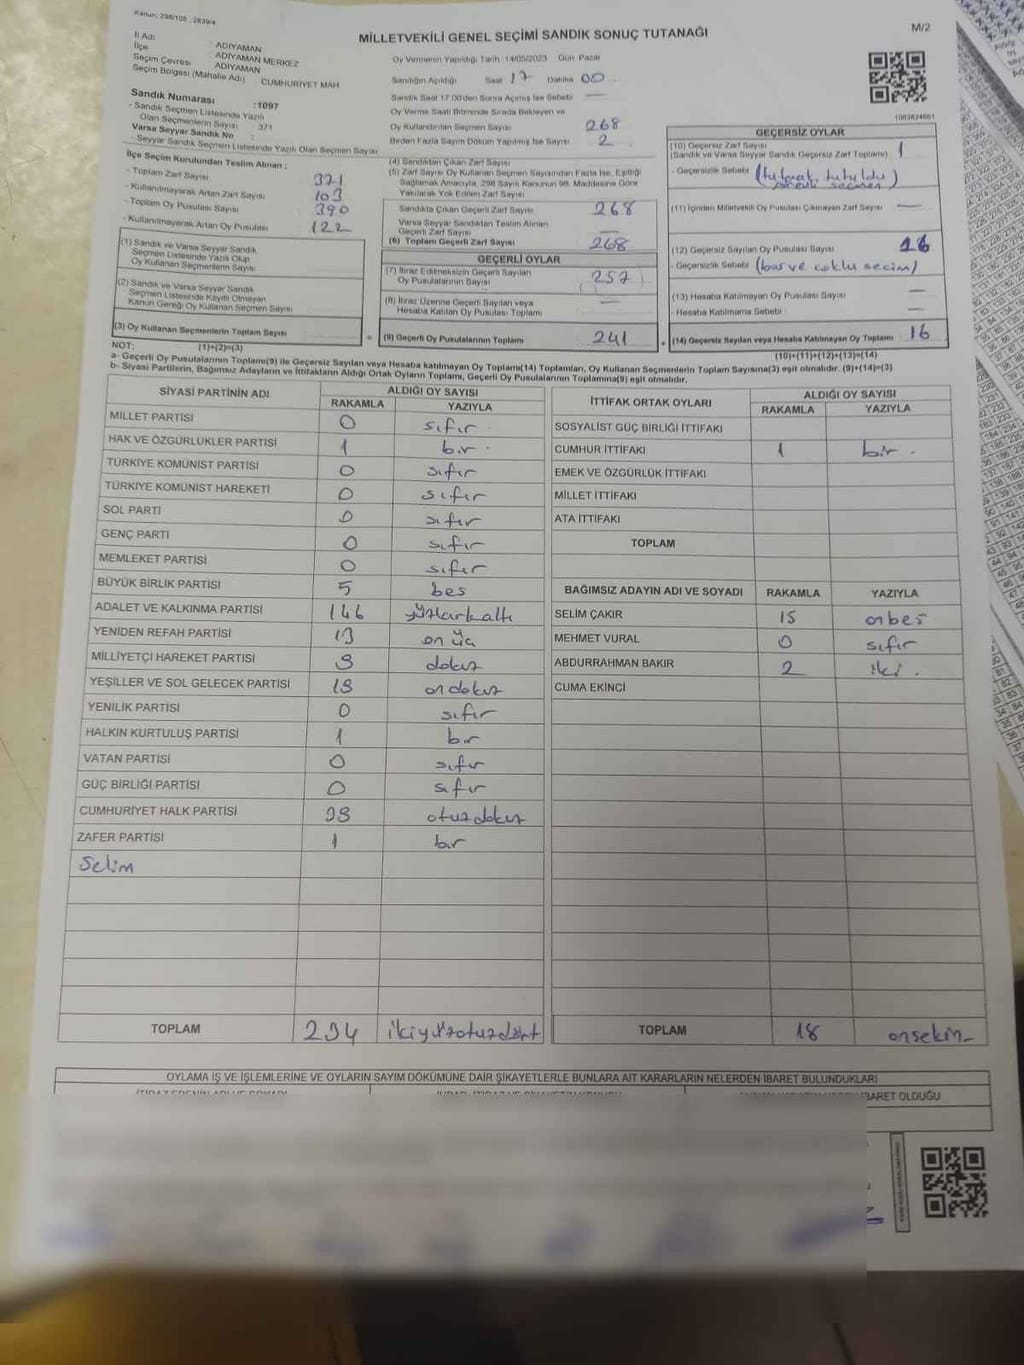 Kanun, 298/105 , 2839/4
M/2
MİLLETVEKİLİ GENEL SEÇİMİ SANDIK SONUÇ TUTANAĞI
İl Adı : ADIYAMAN
İlçe : ADIYAMAN MERKEZ
Seçim Çevresi : ADIYAMAN
Seçim Bölgesi (Mahalle Adı) CUMHURİYET MAH
Sandık Numarası :1097
- Sandık Seçmen Listesinde Yazılı
Olan Seçmenlerin Sayısı : 371
Varsa Seyyar Sandık No :
- Seyyar Sandık Seçmen Listesinde Yazılı Olan Seçmen Sayısı
İlçe Seçim Kurulundan Teslim Alınan ;
- Toplam Zarf Sayısı 371
- Kullanılmayarak Artan Zarf Sayısı 103
- Toplam Oy Pusulası Sayısı 390
- Kullanılmayarak Artan Oy Pusulası 122
(1) Sandık ve Varsa Seyyar Sandık
Seçmen Listesinde Yazılı Olup
Oy Kullanan Seçmenlerin Sayısı
(2) Sandık ve Varsa Seyyar Sandık
Seçmen Listesinde Kayıtlı Olmayan
Kanun Gereği Oy Kullanan Seçmen Sayısı
(3) Oy Kullanan Seçmenlerin Toplam Sayısı
(1)+(2)=(3)
Oy Vermenin Yapıldığı Tarih 14/05/2023 Gün Pazar
Sandığın Açıldığı Saat 17 Dakika 00
Sandık Saat 17:00'den Sonra Açılmış İse Sebebi —
Oy Verme Saati Bitiminde Sırada Bekleyen ve
Oy Kullandırılan Seçmen Sayısı 268
Birden Fazla Sayım Döküm Yapılmış İse Sayısı 2
(4) Sandıktan Çıkan Zarf Sayısı
(5) Zarf Sayısı Oy Kullanan Seçmen Sayısından Fazla İse, Eşitliği
Sağlamak Amacıyla, 298 Sayılı Kanunun 98. Maddesine Göre
Yakılarak Yok Edilen Zarf Sayısı
Sandıkta Çıkan Geçerli Zarf Sayısı 268
Varsa Seyyar Sandıktan Teslim Alınan
Geçerli Zarf Sayısı —
(6) Toplam Geçerli Zarf Sayısı 268
GEÇERLİ OYLAR
(7) İtiraz Edilmeksizin Geçerli Sayılan
Oy Pusulalarının Sayısı 257
(8) İtiraz Üzerine Geçerli Sayılan veya
Hesaba Katılan Oy Pusulası Toplamı —
= (9) Geçerli Oy Pusulalarının Toplamı 241
1083824661
GEÇERSİZ OYLAR
(10) Geçersiz Zarf Sayısı 1
(Sandık ve Varsa Seyyar Sandık Geçersiz Zarf Toplamı)
- Geçersizlik Sebebi (tutanak tutuldu)
seçmen
(11) İçinden Milletvekili Oy Pusulası Çıkmayan Zarf Sayısı —
(12) Geçersiz Sayılan Oy Pusulası Sayısı 16
- Geçersizlik Sebebi (bas ve coklu secim)
(13) Hesaba Katılmayan Oy Pusulası Sayısı —
- Hesaba Katılmama Sebebi —
+ (14) Geçersiz Sayılan veya Hesaba Katılmayan Oy Toplamı 16
(10)+(11)+(12)+(13)=(14)
NOT:
a- Geçerli Oy Pusulalarının Toplamı(9) ile Geçersiz Sayılan veya Hesaba katılmayan Oy Toplamı(14) Toplamları, Oy Kullanan Seçmenlerin Toplam Sayısına(3) eşit olmalıdır. (9)+(14)=(3)
b- Siyasi Partilerin, Bağımsız Adayların ve İttifakların Aldığı Ortak Oyların Toplamı, Geçerli Oy Pusulalarının Toplamına(9) eşit olmalıdır.
SİYASİ PARTİNİN ADI ALDIĞI OY SAYISI
RAKAMLA YAZIYLA
MİLLET PARTİSİ 0 sıfır
HAK VE ÖZGÜRLÜKLER PARTİSİ 1 bir
TÜRKİYE KOMÜNİST PARTİSİ 0 sıfır
TÜRKİYE KOMÜNİST HAREKETİ 0 sıfır
SOL PARTİ 0 sıfır
GENÇ PARTİ 0 sıfır
MEMLEKET PARTİSİ 0 sıfır
BÜYÜK BİRLİK PARTİSİ 5 bes
ADALET VE KALKINMA PARTİSİ 146 yüzkırkaltı
YENİDEN REFAH PARTİSİ 13 on üç
MİLLİYETÇİ HAREKET PARTİSİ 9 dokuz
YEŞİLLER VE SOL GELECEK PARTİSİ 19 ondokuz
YENİLİK PARTİSİ 0 sıfır
HALKIN KURTULUŞ PARTİSİ 1 bir
VATAN PARTİSİ 0 sıfır
GÜÇ BİRLİĞİ PARTİSİ 0 sıfır
CUMHURİYET HALK PARTİSİ 39 otuzdokuz
ZAFER PARTİSİ 1 bir
Selim
TOPLAM 234 ikiyüzotuzdört
İTTİFAK ORTAK OYLARI ALDIĞI OY SAYISI
RAKAMLA YAZIYLA
SOSYALİST GÜÇ BİRLİĞİ İTTİFAKI
CUMHUR İTTİFAKI 1 bir .
EMEK VE ÖZGÜRLÜK İTTİFAKI
MİLLET İTTİFAKI
ATA İTTİFAKI
TOPLAM
BAĞIMSIZ ADAYIN ADI VE SOYADI RAKAMLA YAZIYLA
SELİM ÇAKIR 15 onbeş
MEHMET VURAL 0 sıfır
ABDURRAHMAN BAKIR 2 iki .
CUMA EKİNCİ
TOPLAM 18 onsekiz
OYLAMA İŞ VE İŞLEMLERİNE VE OYLARIN SAYIM DÖKÜMÜNE DAİR ŞİKAYETLERLE BUNLARA AİT KARARLARIN NELERDEN İBARET BULUNDUKLARI
İBARET OLDUĞU